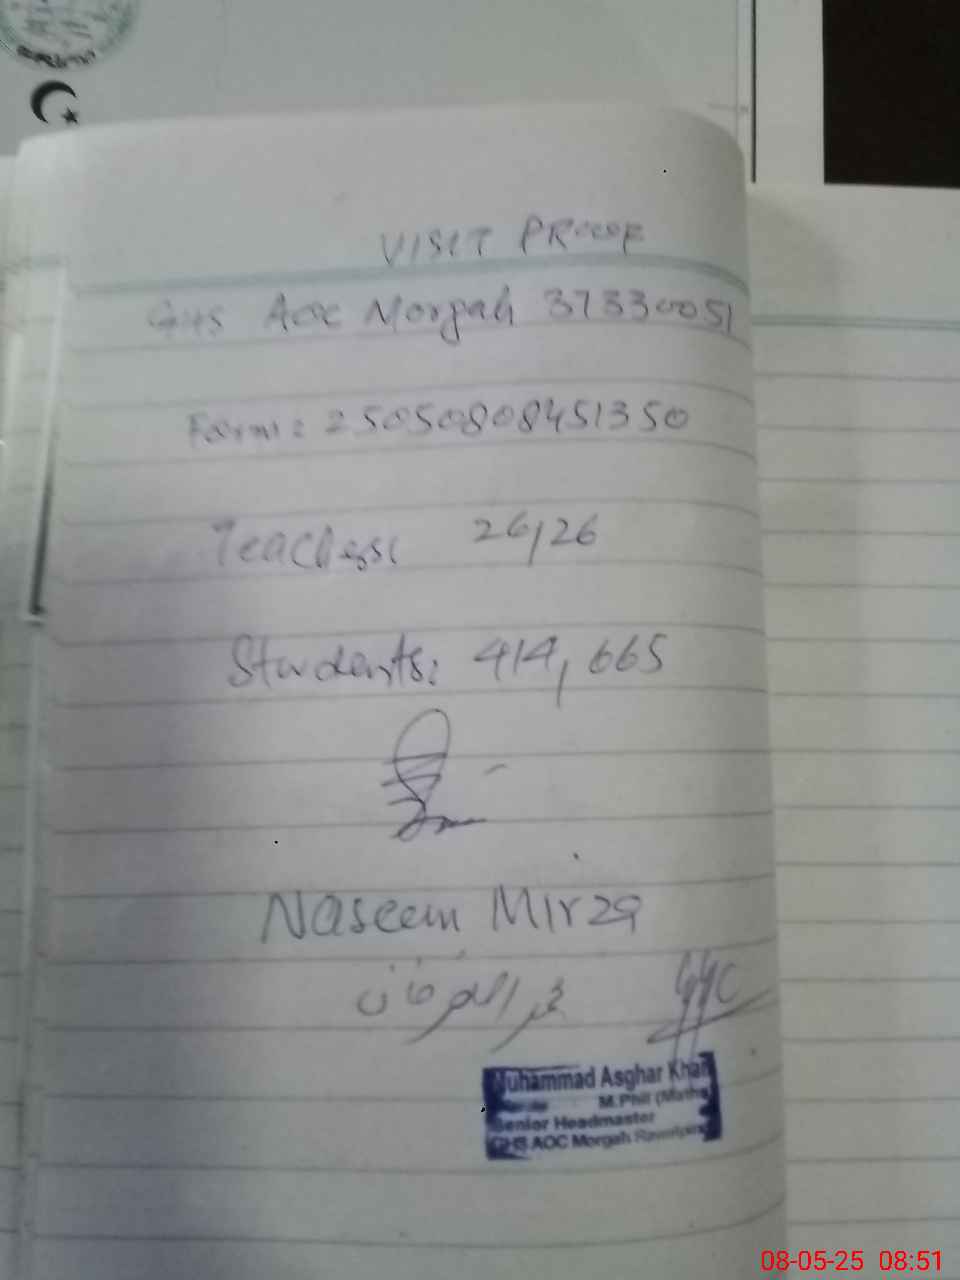 VISIT PROOF
GHS AOC Morgah 37330051
Form: 25050808451350
Teachers: 26,26
Students: 414, 665
Naseem Mirza
Muhammad Asghar Khan
M.Phil (Maths)
Senior Headmaster
GHS AOC Morgah Rawalpindi
08-05-25 08:51